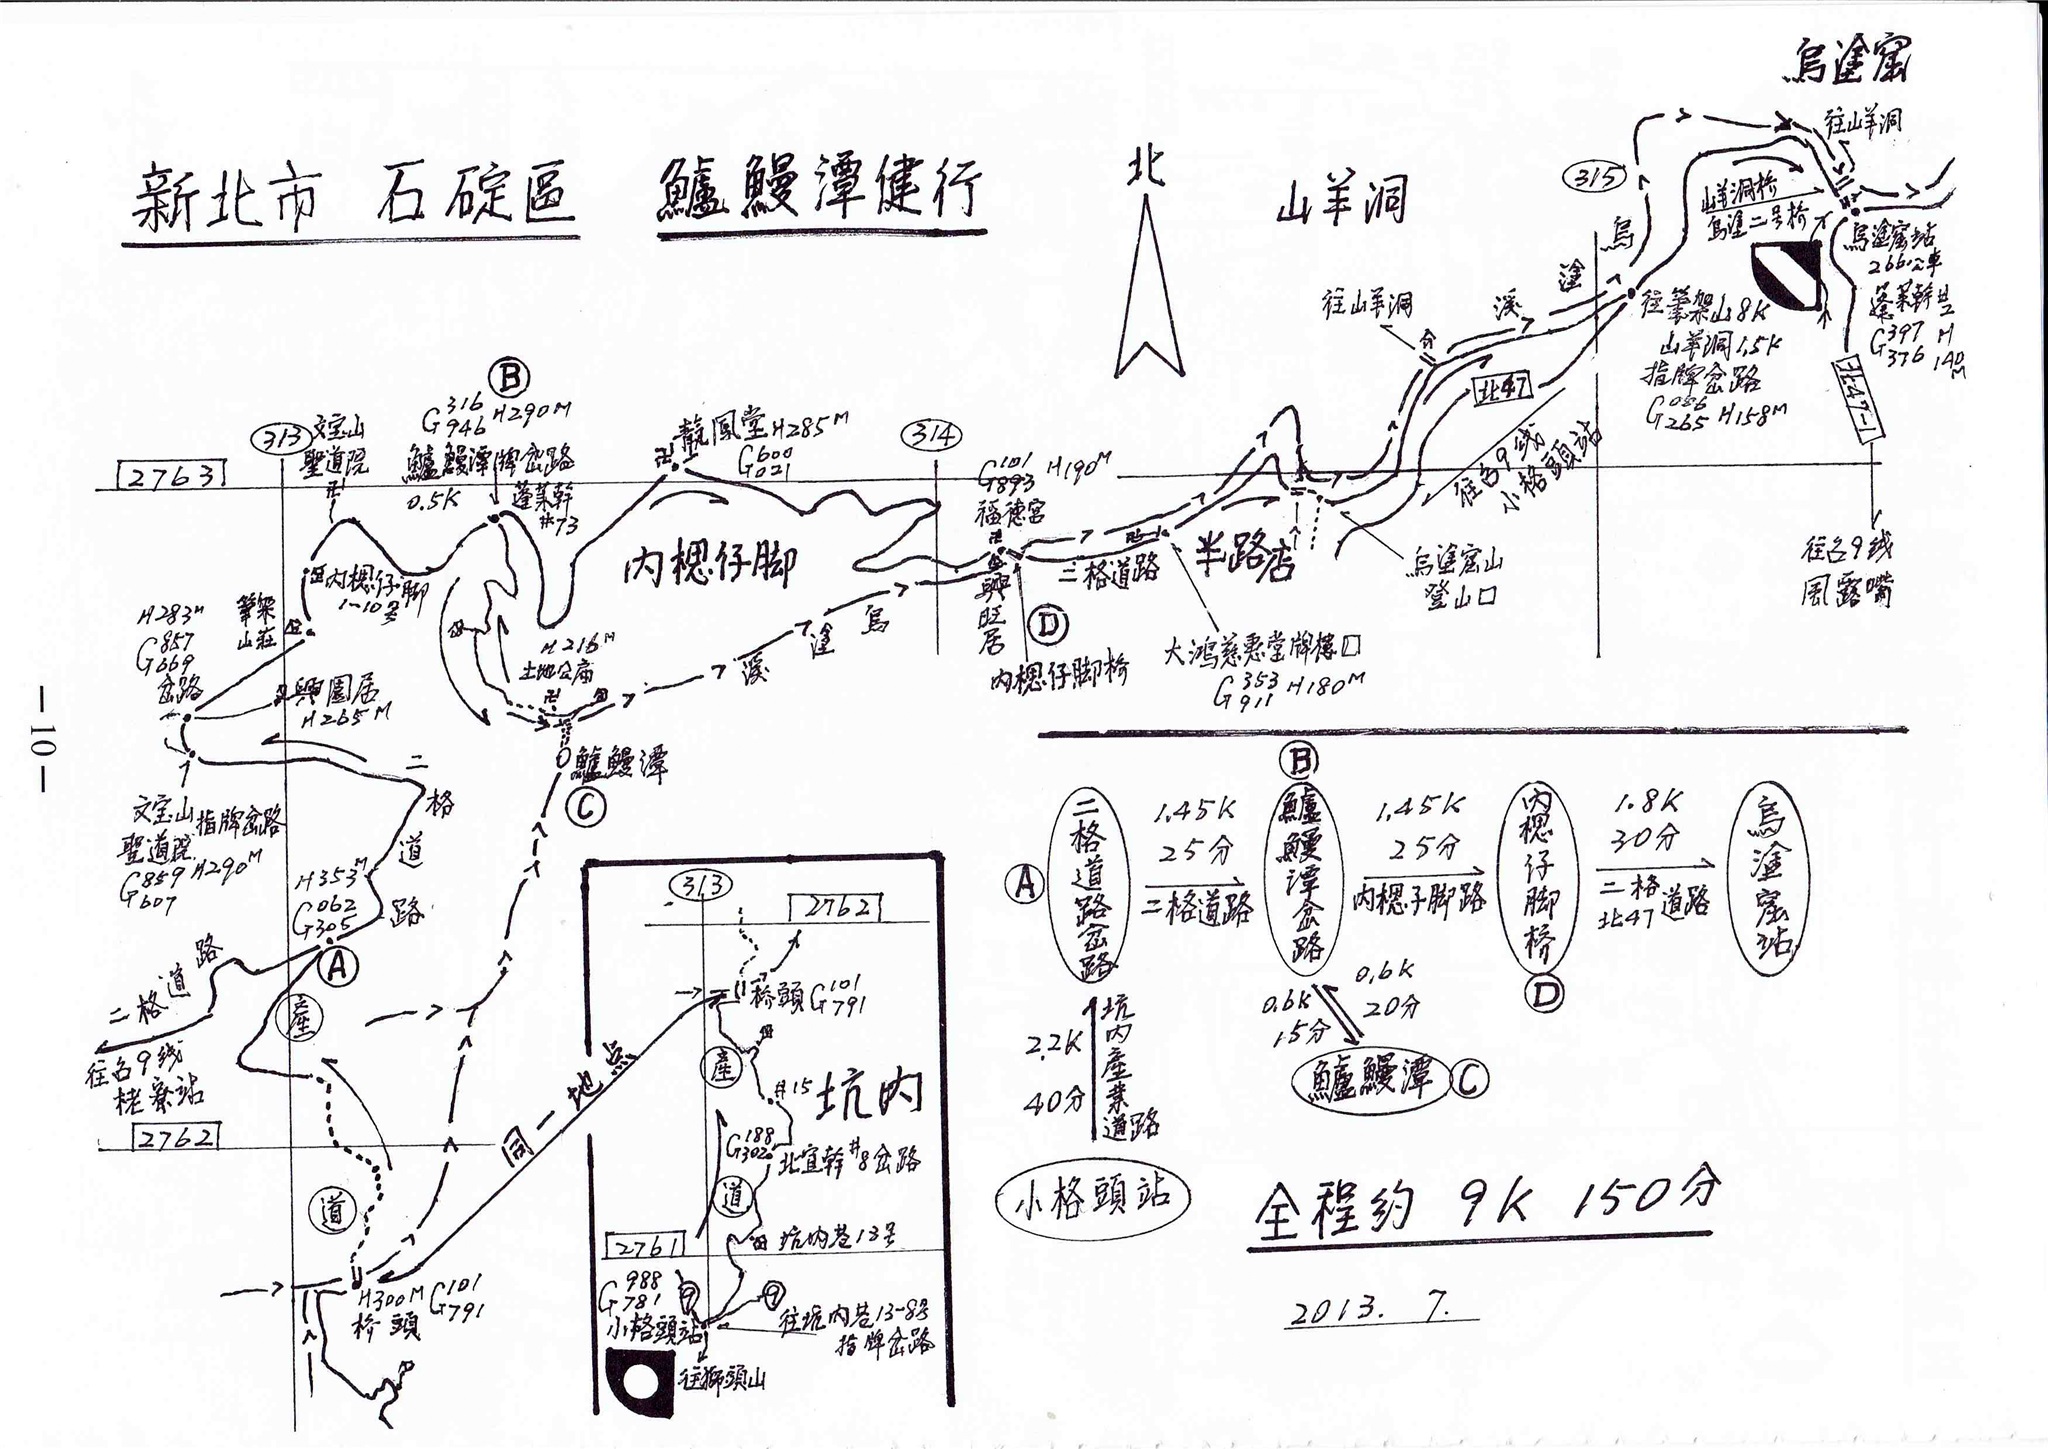 新北市 石碇區 鱸鰻潭健行
北
山羊洞
烏塗窟
往山羊洞
315
山羊洞桥
烏塗二号桥
烏塗窟站
266公車
G397 H
376 140M
北47-1
往名9线
風露嘴
往筆架山8K
山羊洞1.5K
指牌岔路
G086
265 H158M
烏
塗
溪
往山羊洞
北47
往名9线
小格頭站
烏塗窟山
登山口
半路店
大鴻慈惠堂牌樓口
G353
911 H180M
二格道路
314
G101 H190M
893
福德宮
興旺居
D
内楒仔脚桥
靚鳳堂 H285M
G600
021
内楒仔脚
B
G316 H290M
946
鱸鰻潭牌岔路
0.5K
蓬萊幹
#73
313
文宝山
聖道院
2763
内楒仔脚
1-10号
筆架
山莊
H283M
G857
669
岔路
興園居
H265M
H216M
土地公庙
溪
塗
烏
鱸鰻潭
C
文宝山
聖道院 指牌岔路
G859 H290M
607
二
格
道
路
H353M
G062
305
A
二格道路
往名9线
栳寮站
2762
產
道
H300M G101
791
桥頭
同一地点
313
2762
桥頭 G101
791
產
#15
坑内
G188
302
北宜幹#8岔路
道
2761
坑内巷13号
G988
781
小格頭站
9
9
往坑内巷13-8号
指牌岔路
往獅頭山
A
二格道路岔路
1.45K
25分
二格道路
B
鱸鰻潭岔路
1.45K
25分
内楒子脚路
内楒仔脚桥
D
1.8K
30分
二格道路
北47
烏塗窟站
2.2K
40分
坑内產業道路
0.6K
15分
0.6K
20分
鱸鰻潭 C
小格頭站
全程約 9K 150分
2013. 7.
－10－